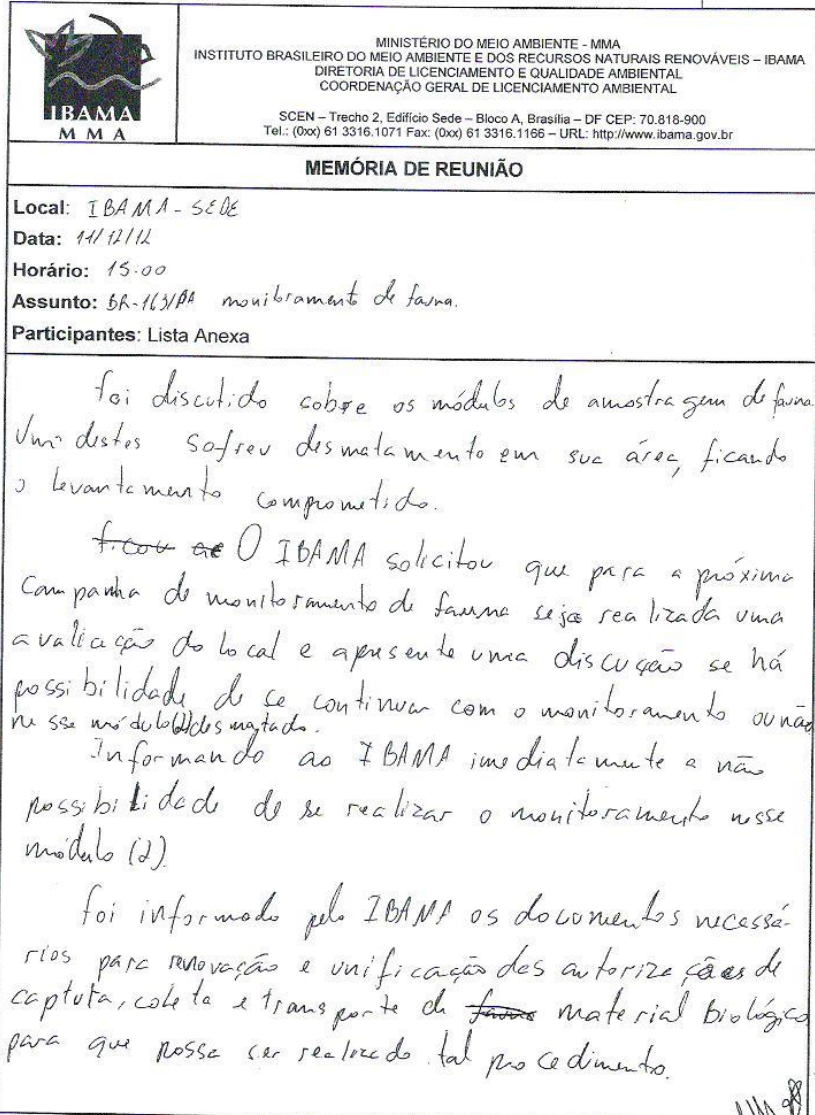 IBAMA
M M A
MINISTÉRIO DO MEIO AMBIENTE - MMA
INSTITUTO BRASILEIRO DO MEIO AMBIENTE E DOS RECURSOS NATURAIS RENOVÁVEIS – IBAMA
DIRETORIA DE LICENCIAMENTO E QUALIDADE AMBIENTAL
COORDENAÇÃO GERAL DE LICENCIAMENTO AMBIENTAL
SCEN – Trecho 2, Edifício Sede – Bloco A, Brasília – DF CEP: 70.818-900
Tel.: (0xx) 61 3316.1071 Fax: (0xx) 61 3316.1166 – URL: http://www.ibama.gov.br
MEMÓRIA DE REUNIÃO
Local: IBAMA - SEDE
Data: 11/12/12
Horário: 15:00
Assunto: BR-163/PA monitoramento de fauna.
Participantes: Lista Anexa
Foi discutido sobre os módulos de amostragem de fauna.
Um destes sofreu desmatamento em sua área, ficando
o levantamento comprometido.
ficou O IBAMA solicitou que para a próxima
campanha de monitoramento de fauna seja realizada uma
avaliação do local e apresente uma discução se há
possibilidade de se continuar com o monitoramento ou não
nesse módulo(2)desmatado.
Informando ao IBAMA imediatamente a não
possibilidade de se realizar o monitoramento nesse
módulo (2).
Foi informado pelo IBAMA os documentos necessá-
rios para renovação e unificação das autorizações de
captuta, coleta e transporte de fauna material biológico
para que possa ser realizado tal procedimento.